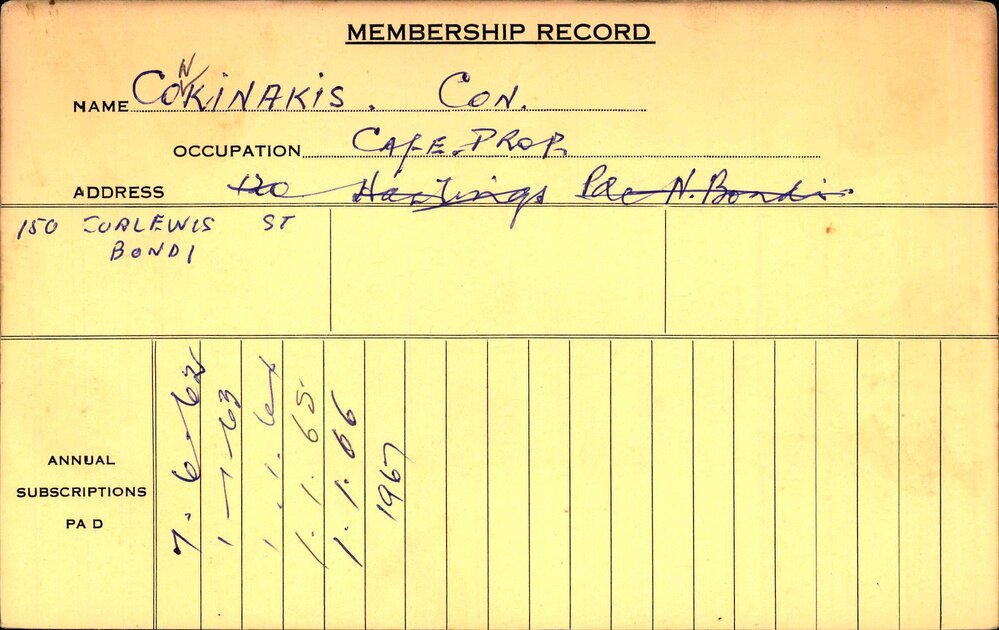 MEMBERSHIP RECORD
NAME CONKINAKIS. CON.
OCCUPATION CAFE. PROP.
ADDRESS 120 Hastings Pde N. Bondi.
150 CURLEWIS ST
BONDI
ANNUAL
SUBSCRIPTIONS
PA D
7-6-62
1-1-63
1.1.64
1.1.65
1.1.66
1967